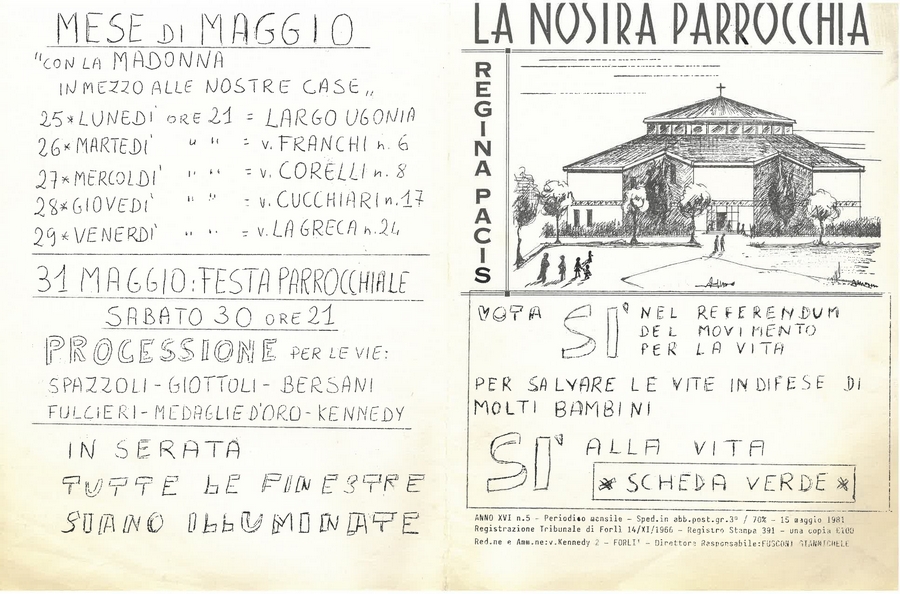 MESE DI MAGGIO
"CON LA MADONNA
IN MEZZO ALLE NOSTRE CASE„
25*LUNEDI' ORE 21 = LARGO UGONIA
26*MARTEDI' " " = v. FRANCHI n. 6
27*MERCOLDI' " " = v. CORELLI n. 8
28*GIOVEDI' " " = v. CUCCHIARI n. 17
29*VENERDI' " " = v. LA GRECA n. 24
31 MAGGIO: FESTA PARROCCHIALE
SABATO 30 ORE 21
PROCESSIONE PER LE VIE:
SPAZZOLI - GIOTTOLI - BERSANI
FULCIERI - MEDAGLIE D'ORO - KENNEDY
IN SERATA
TUTTE LE FINESTRE
SIANO ILLUMINATE
LA NOSTRA PARROCCHIA
REGINA PACIS
VOTA SI' NEL REFERENDUM
DEL MOVIMENTO
PER LA VITA
PER SALVARE LE VITE INDIFESE DI
MOLTI BAMBINI
SI' ALLA VITA
* SCHEDA VERDE *
ANNO XVI n.5 - Periodico mensile - Sped.in abb.post.gr.3° / 70% - 15 maggio 1981
Registrazione Tribunale di Forlì 14/XI/1966 - Registro Stampa 391 - una copia £100
Red.ne e Amm.ne:v.Kennedy 2 - FORLI' - Direttore Responsabile:FUSCONI GIANMICHELE